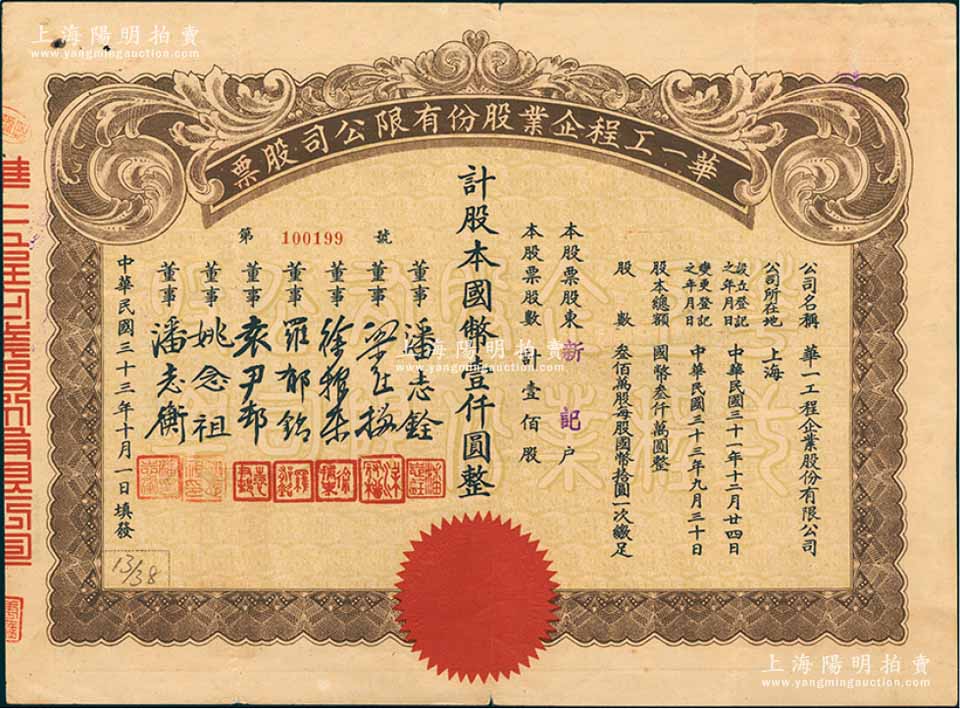 上海陽明拍賣
www.yangmingauction.com
華一工程企業股份有限公司股票
公司名稱 華一工程企業股份有限公司
公司所在地 上海
設立登記之年月日 中華民國三十一年十二月廿四日
變更登記之年月日 中華民國三十三年九月三十日
股本總額 國幣叁仟萬圓整
股數 叁佰萬股每股國幣拾圓一次繳足
本股票股東 新記 户
本股票股數 計壹佰股
計股本國幣壹仟圓整
第 100199 號
董事 潘志銓
董事
董事
董事 羅郁銘
董事 袁尹邨
董事 姚念祖
董事 潘志衡
中華民國三十三年十月一日填發
13/38
上海陽明拍賣
www.yangmingauction.com
上海陽明拍賣
www.yangmingauction.com